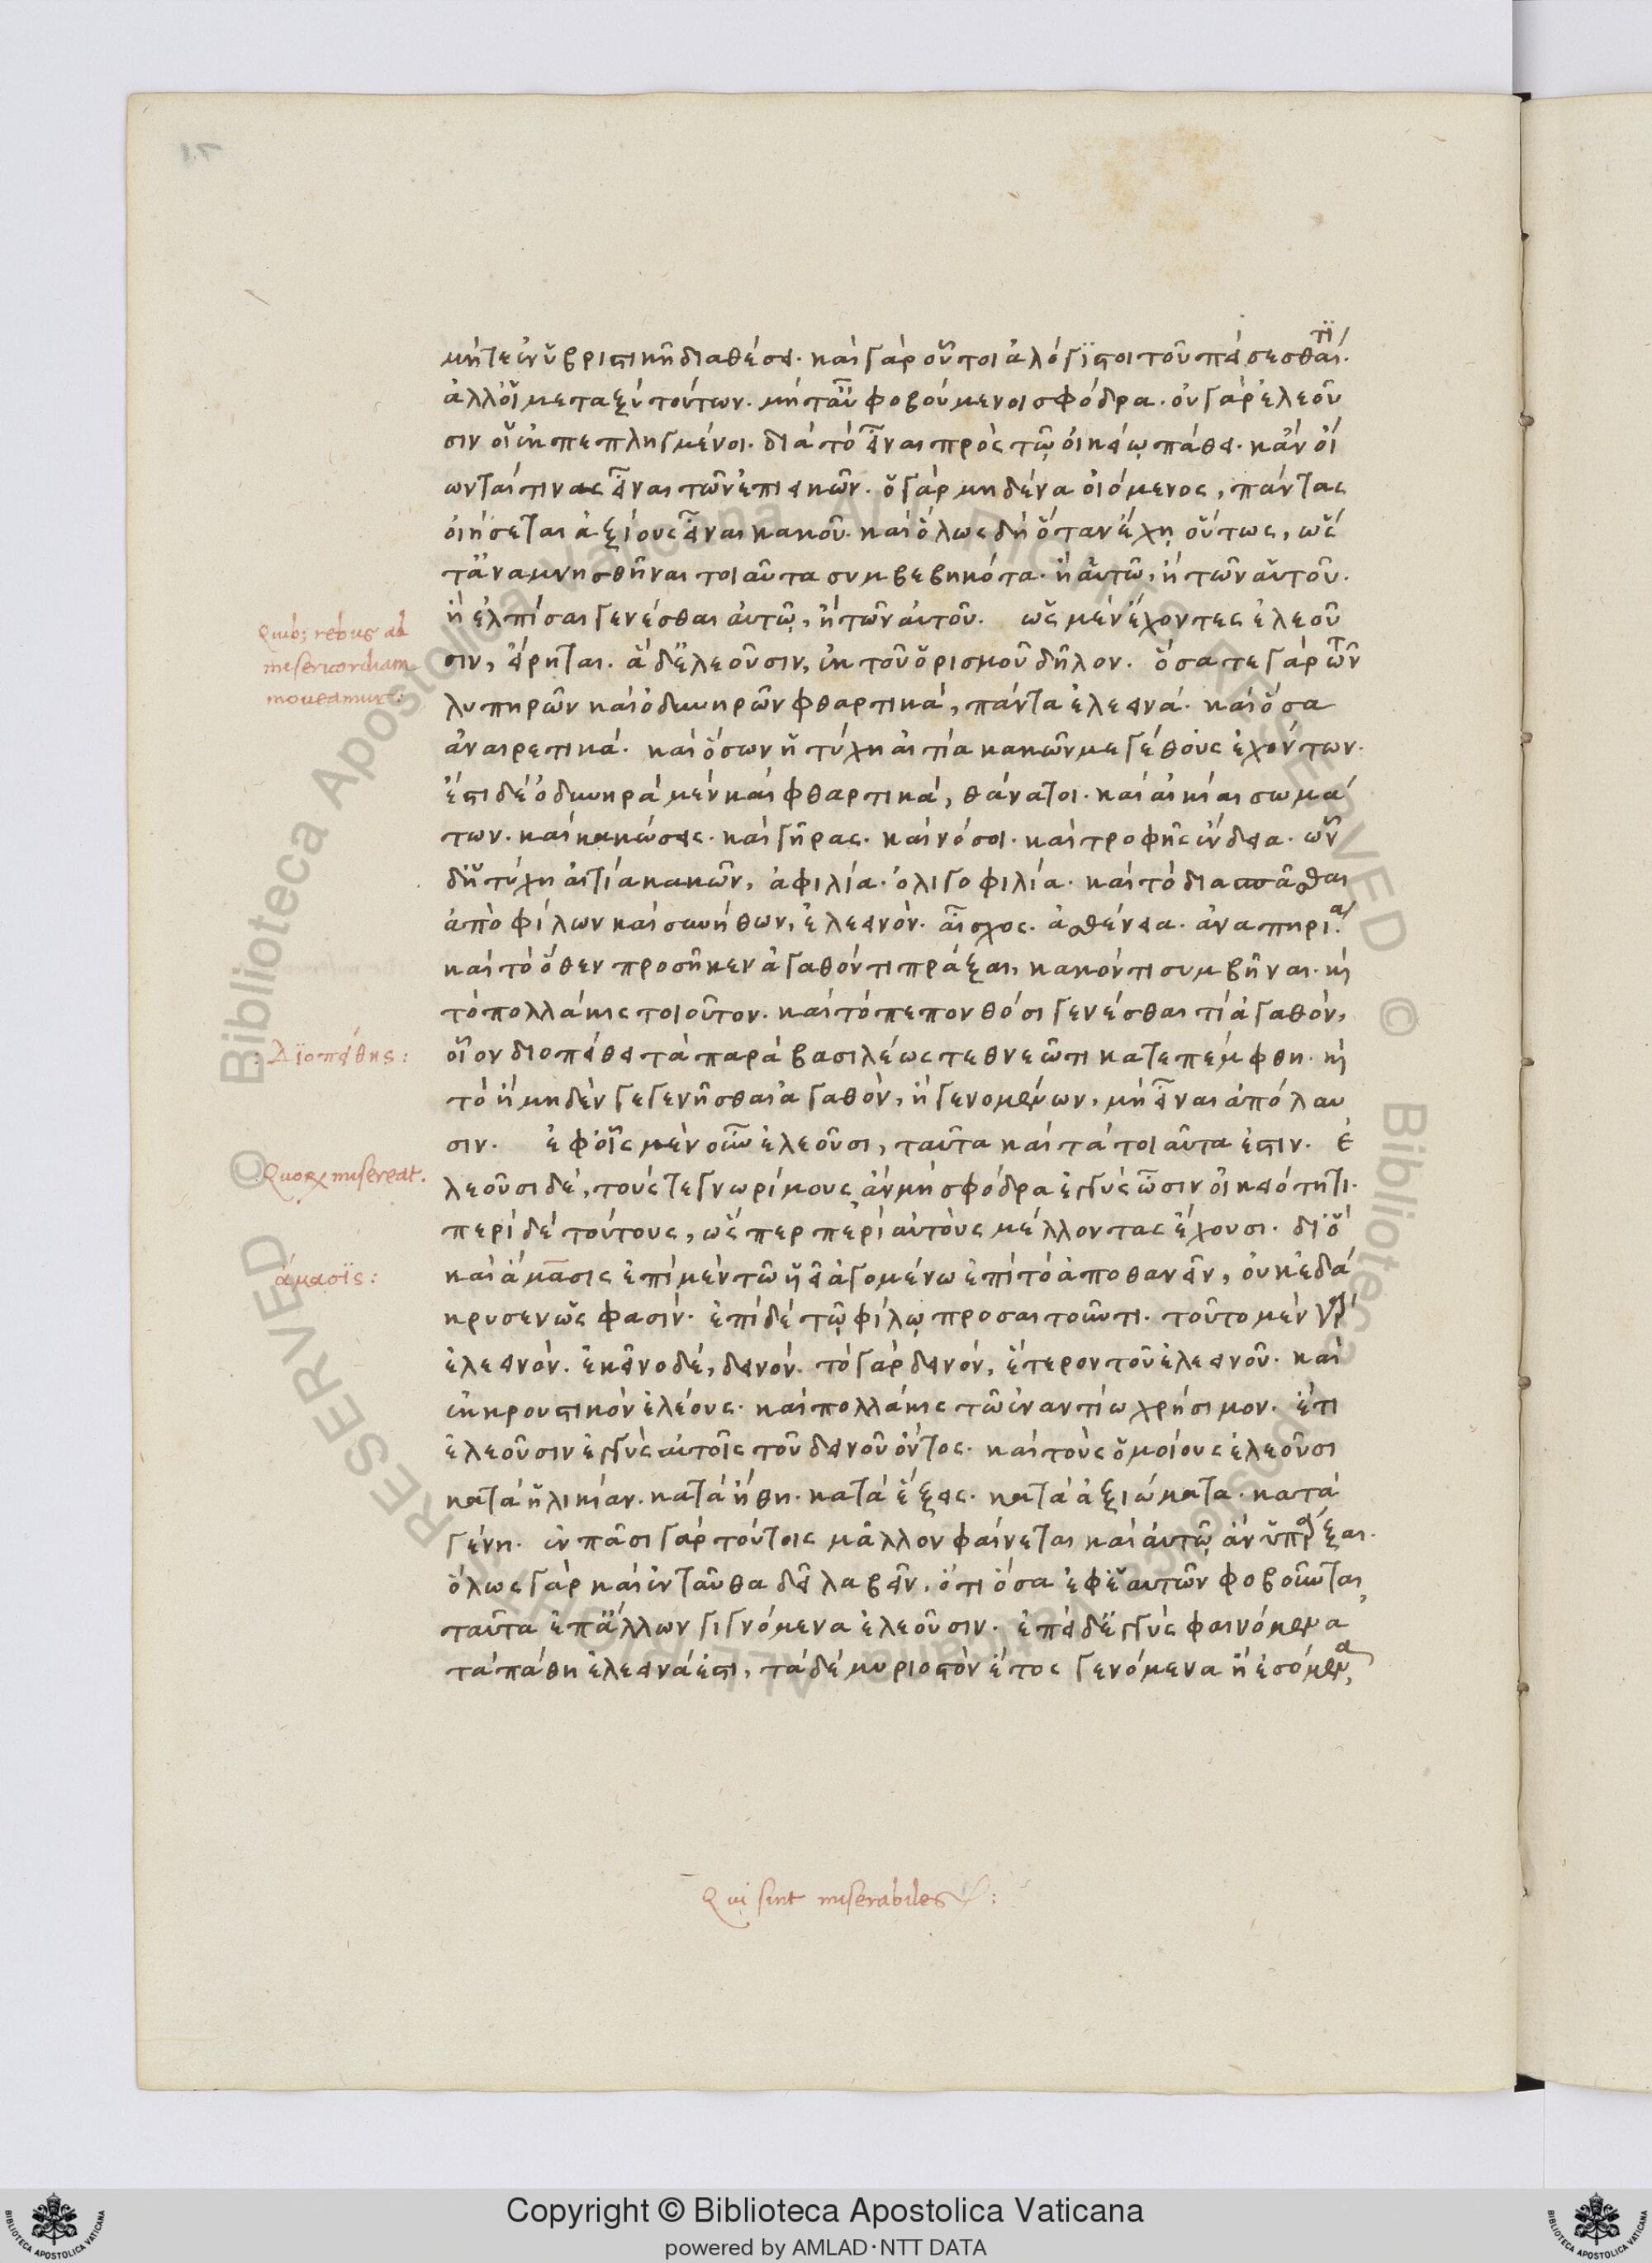 μήτε ἐν ὑβριστικῆ διαθέσει. καὶ γὰρ οὗτοι ἀλόγιστοι τοῦ πείσεσθαί τι.
ἀλλ' οἱ μεταξὺ τούτων. μήτ' αὖ φοβούμενοι σφόδρα. οὐ γὰρ ἐλεοῦ
σιν οἱ ἐκπεπληγμένοι. διὰ τὸ εἶναι πρὸς τῷ οἰκείῳ πάθει. κἂν οἴ
ωνταί τινας εἶναι τῶν ἐπιεικῶν. ὁ γὰρ μηδένα οἰόμενος, πάντας
οἰήσεται ἀξίους εἶναι κακοῦ. καὶ ὅλως δὴ ὅταν ἔχῃ οὕτως, ὥσ
τ' ἀναμνησθῆναι τοιαῦτα συμβεβηκότα. ἢ αὑτῶ, ἢ τῶν αὑτοῦ.
ἢ ἐλπίσαι γενέσθαι αὐτῷ, ἢ τῶν αὐτοῦ. ὡς μὲν ἔχοντες ἐλεοῦ
Quib; rebus ad
misericordiam
moueamur:
σιν, εἴρηται. ἃ δ' ἐλεοῦσιν, ἐκ τοῦ ὁρισμοῦ δῆλον. ὅσα τε γὰρ τῶν
λυπηρῶν καὶ ὀδυνηρῶν φθαρτικά, πάντα ἐλεεινά. καὶ ὅσα
ἀναιρετικά. καὶ ὅσων ἡ τύχη αἰτία κακῶν μεγέθους ἐχόντων.
ἔστι δὲ ὀδυνηρὰ μὲν καὶ φθαρτικά, θάνατοι. καὶ αἰκίαι σωμά
των. καὶ κακώσεις. καὶ γῆρας. καὶ νόσοι. καὶ τροφῆς ἔνδεια. ὧν
δ' ἡ τύχη αἰτία κακῶν, ἀφιλία. ὀλιγοφιλία. καὶ τὸ διασπᾶσθαι
ἀπὸ φίλων καὶ συνήθων, ἐλεεινόν. αἶσχος. ἀσθένεια. ἀναπηρία.
καὶ τὸ ὅθεν προσῆκεν ἀγαθόν τι πράξαι, κακόν τι συμβῆναι. καὶ
τὸ πολλάκις τοιοῦτον. καὶ τὸ πεπονθόσι γενέσθαι τὶ ἀγαθόν,
: Διοπείθης :
οἷον διοπείθει τὰ παρὰ βασιλέως τεθνεῶτι κατεπέμφθη. καὶ
τὸ ἢ μηδὲν γεγενῆσθαι ἀγαθὸν, ἢ γενομένων, μὴ εἶναι ἀπόλαυ
σιν. ἐφ' οἷς μὲν οὖν ἐλεοῦσι, ταῦτα καὶ τὰ τοιαῦτα ἐστιν. ἐ
Quorum misereat.
λεοῦσι δὲ, τούς τε γνωρίμους, ἂν μὴ σφόδρα ἐγγὺς ὦσιν οἰκειότητι.
περὶ δὲ τούτους, ὥσπερ περὶ αὐτοὺς μέλλοντας ἔχουσι. διὸ
ἄμασις :
καὶ ἄμασις ἐπὶ μὲν τῶ υἱεῖ ἀγομένω ἐπὶ τὸ ἀποθανεῖν, οὐκ ἐδά
κρυσεν ὥς φασιν. ἐπὶ δὲ τῷ φίλῳ προσαιτοῦντι. τοῦτο μὲν γὰρ
ἐλεεινόν. ἐκεῖνο δὲ, δεινόν. τὸ γὰρ δεινόν, ἕτερον τοῦ ἐλεεινοῦ. καὶ
ἐκκρουστικὸν ἐλέους. καὶ πολλάκις τῶ ἐναντίω χρήσιμον. ἔτι
ἐλεοῦσιν ἐγγὺς αὐτοῖς τοῦ δεινοῦ ὄντος. καὶ τοὺς ὁμοίους ἐλεοῦσι
κατὰ ἡλικίαν. κατὰ ἤθη. κατὰ ἕξεις. κατὰ ἀξιώματα. κατὰ
γένη. ἐν πᾶσι γὰρ τούτοις μᾶλλον φαίνεται καὶ αὐτῷ ἂν ὑπάρξαι.
ὅλως γὰρ καὶ ἐνταῦθα δεῖ λαβεῖν, ὅτι ὅσα ἐφ' ἑαυτῶν φοβοῦνται,
ταῦτα ἐπ' ἄλλων γιγνόμενα ἐλεοῦσιν. ἐπεὶ δ' ἐγγὺς φαινόμενα
τὰ πάθη ἐλεεινά ἐστι, τὰ δὲ μυριοστὸν ἔτος γενόμενα ἢ ἐσόμενα,
Qui sint miserabiles :
Copyright © Biblioteca Apostolica Vaticana
powered by AMLAD·NTT DATA